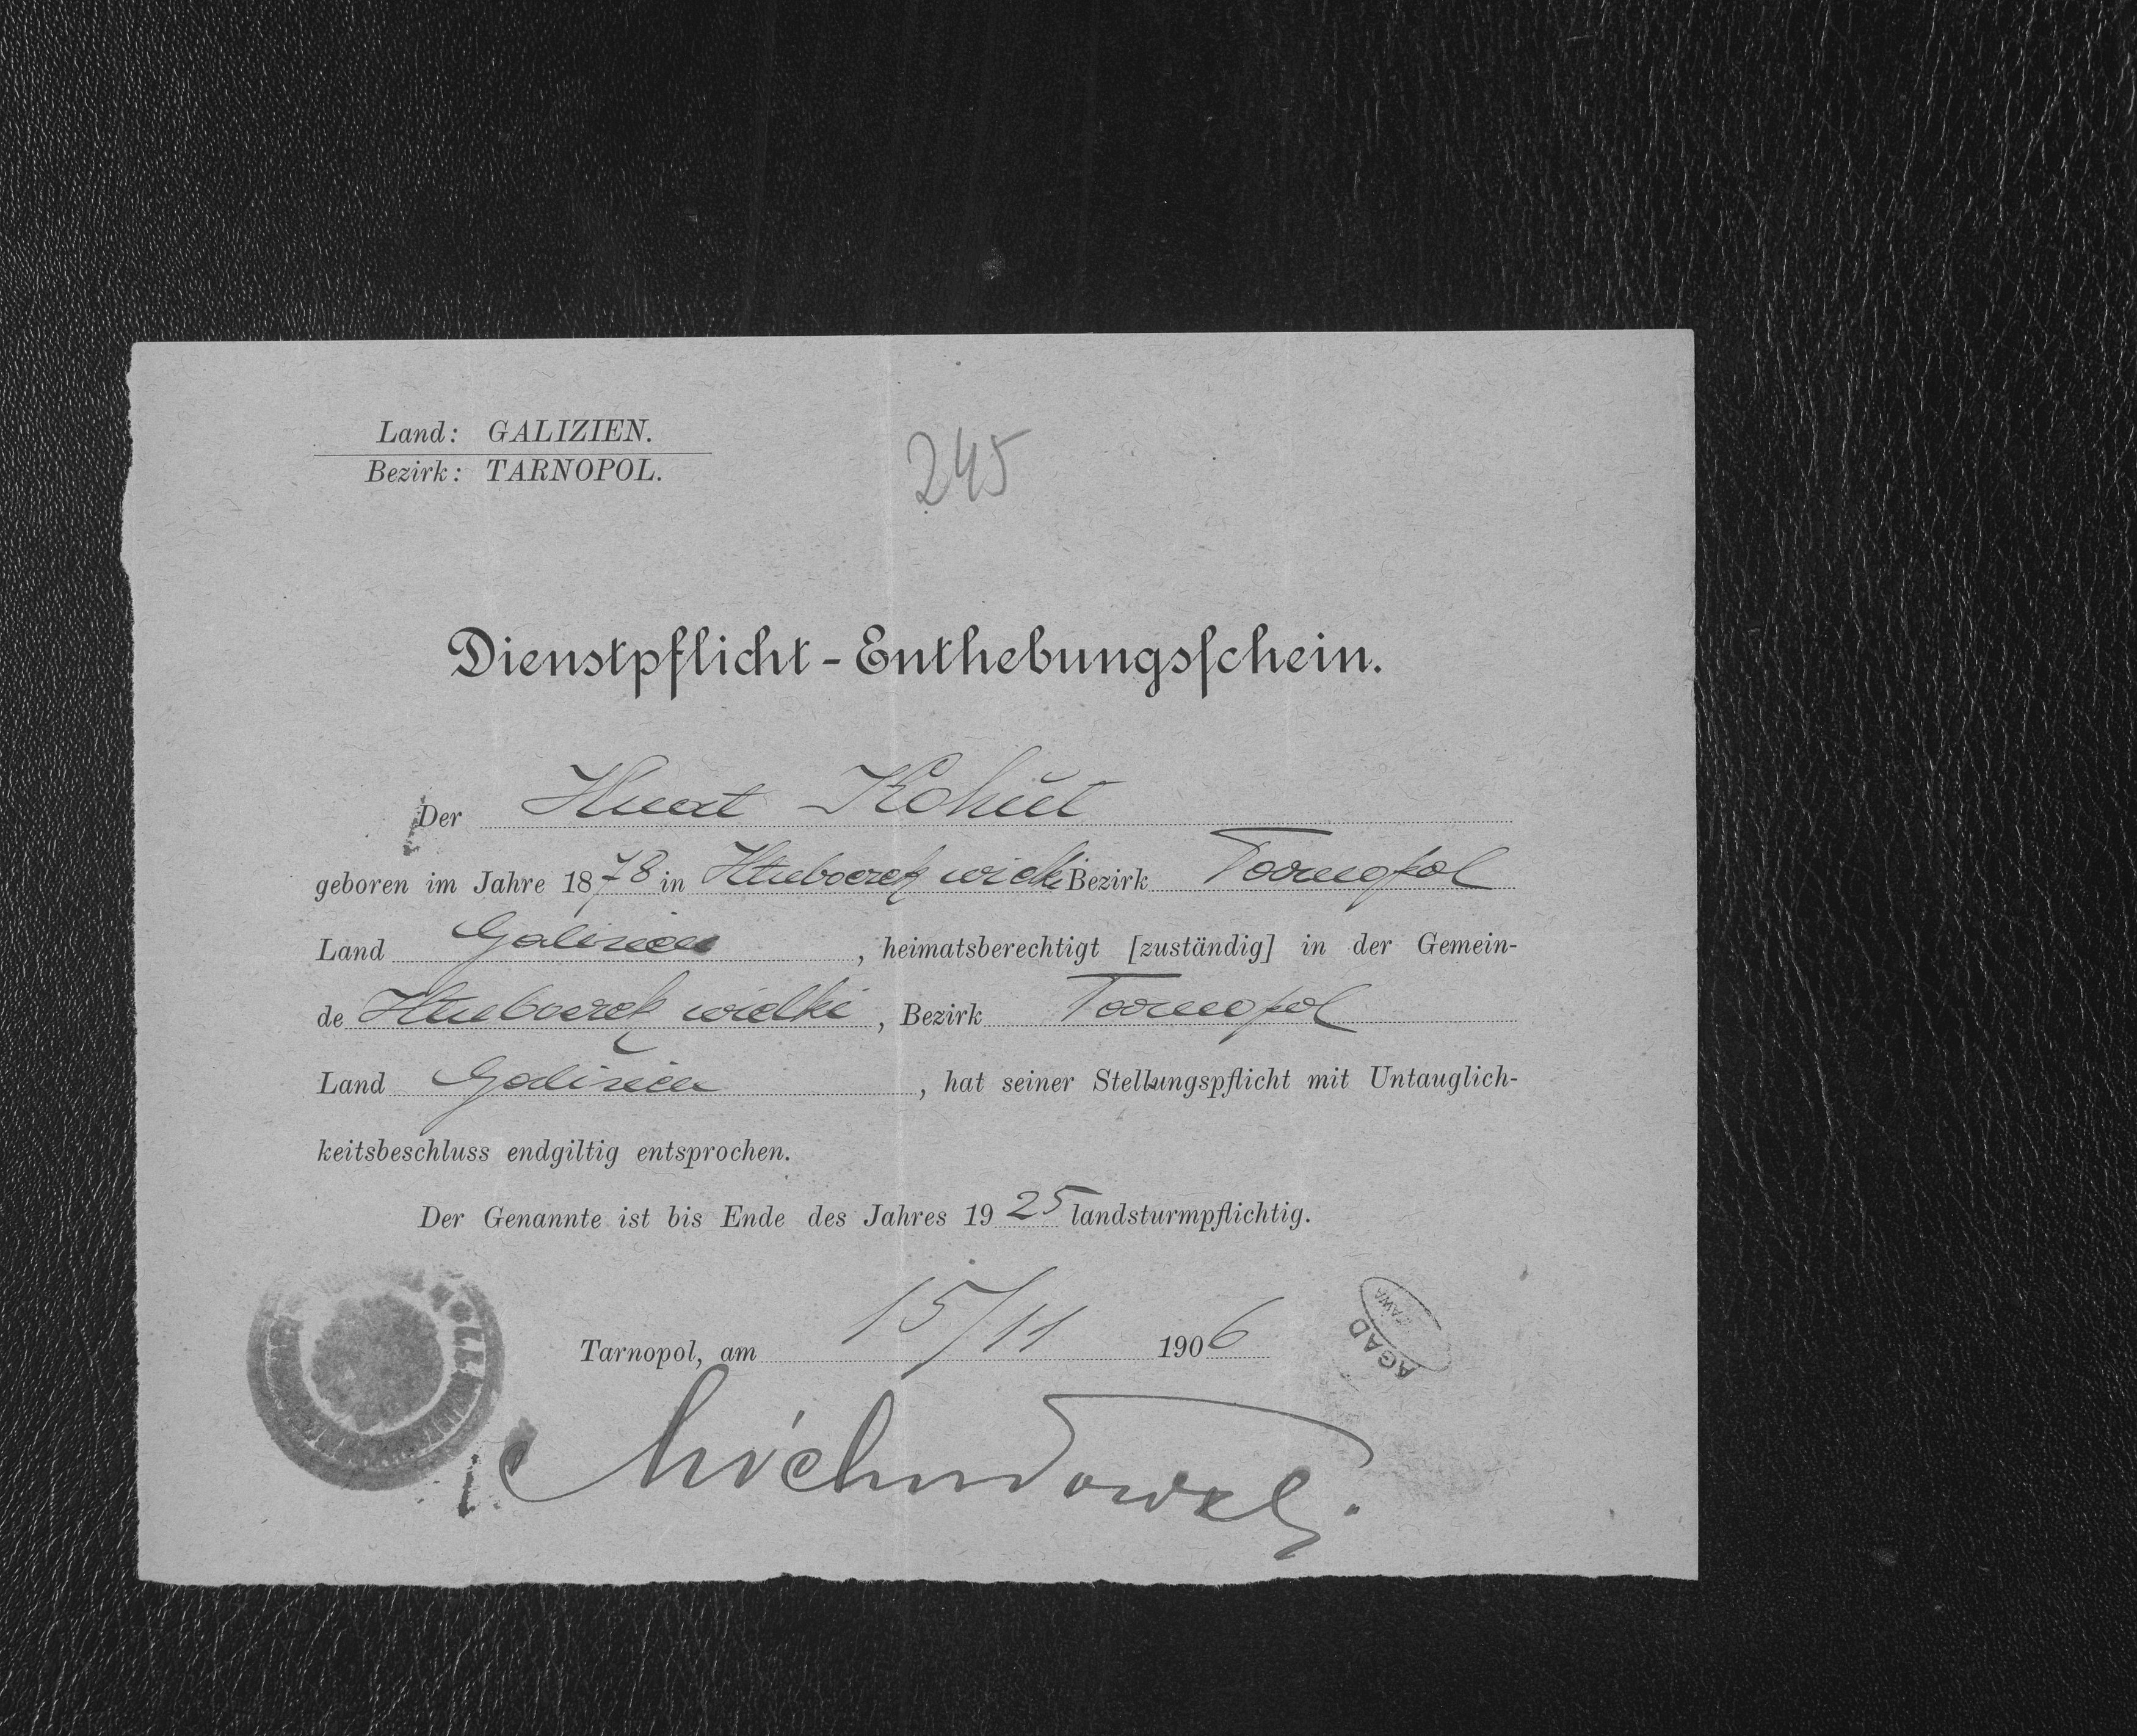 Land: GALIZIEN.
Bezirk: TARNOPOL.
245
Dienstpflicht-Enthebungsschein.
Der Hnat Kohut
geboren im Jahre 1878 in Hłuboczek wielki Bezirk Tarnopol
Land Galizien, heimatsberechtigt [zuständig] in der Gemein-
de Hłuboczek wielki, Bezirk Tarnopol
Land Galizien, hat seiner Stellungspflicht mit Untauglich-
keitsbeschluss endgiltig entsprochen.
Der Genannte ist bis Ende des Jahres 1925 landsturmpflichtig.
Tarnopol, am 15/11 1906
AGAD